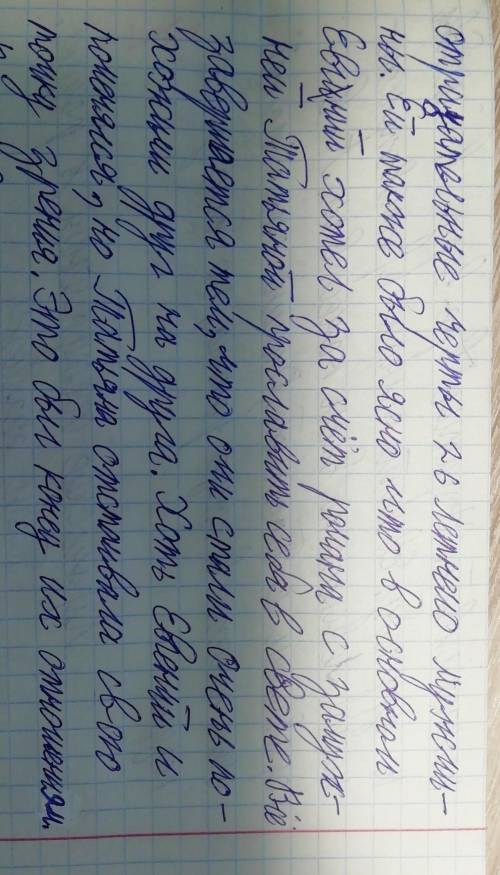 отрицательные черты 26 летнего мужчи-
ны. Ей также было ясно что в основном
Евгений хотел за счёт романа с замуж-
ней Татьяной прославить себя в свете. Всё
завершается тем, что они стали очень по-
хожими друг на друга. Хоть Евгений и
поменялся, но Татьяна отстаивала свою
точку зрения. Это был конец их отношениям.